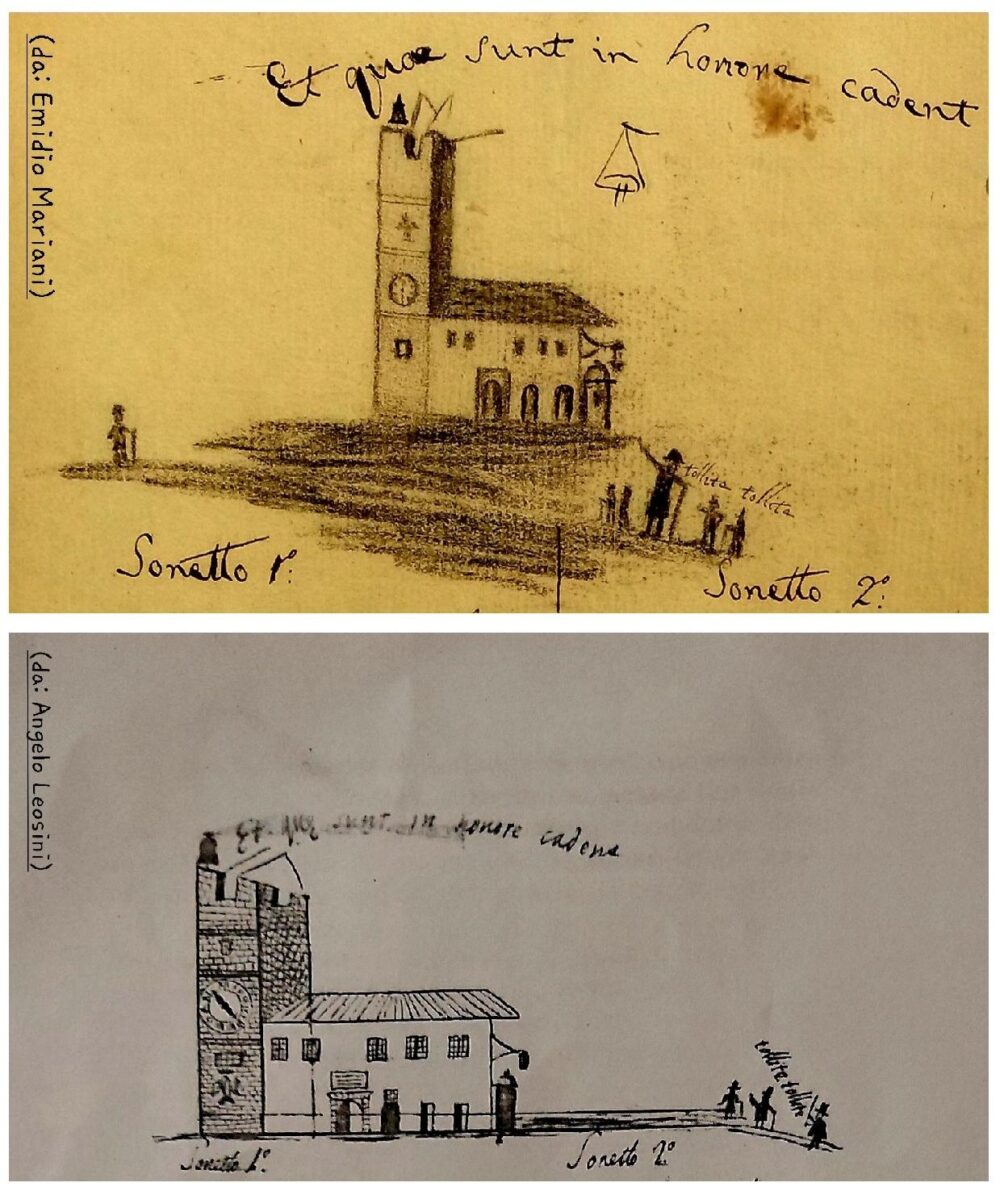 (da: Emidio Mariani)
Et quae sunt in honore cadent
tollite tollite
Sonetto 1º:
Sonetto 2º:
(da: Angelo Leosini)
sunt in honore cadent
tollite tollite
Sonetto 1º:
Sonetto 2º: